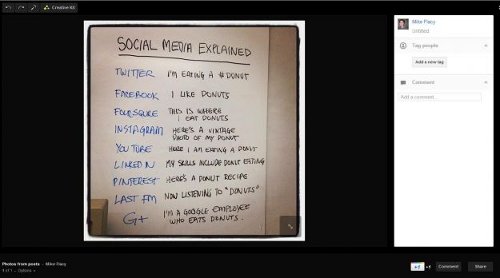 Creative Kit
SOCIAL MEDIA EXPLAINED
TWITTER I'M EATING A #DONUT
FACEBOOK I LIKE DONUTS
FOURSQUARE THIS IS WHERE
I EAT DONUTS
INSTAGRAM HERE'S A VINTAGE
PHOTO OF MY DONUT
YOUTUBE HERE I AM EATING A DONUT
LINKED IN MY SKILLS INCLUDE DONUT EATING
PINTEREST HERE'S A DONUT RECIPE
LAST FM NOW LISTENING TO "DONUTS"
G+ I'M A GOOGLE EMPLOYEE
WHO EATS DONUTS.
Untitled
Tag people
Add a new tag
Comment
Add a comment...
Photos from posts
Options
+1
Comment
Share